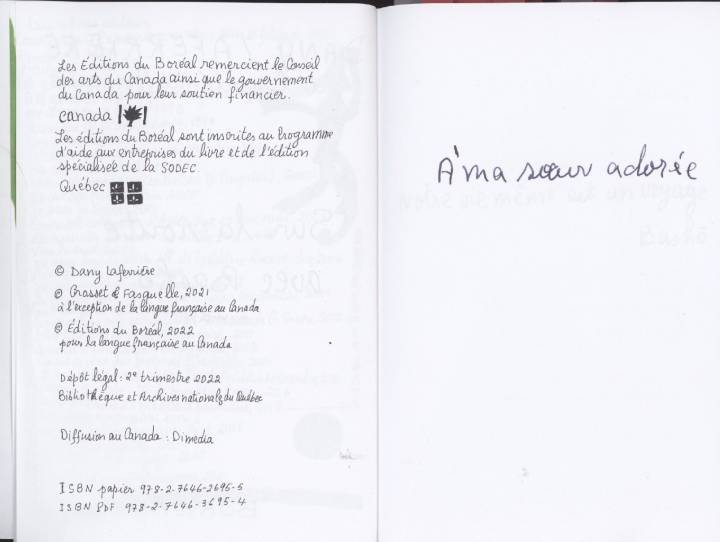 Les Éditions du Boréal remercient le Conseil
des arts du Canada ainsi que le gouvernement
du Canada pour leur soutien financier.
Canada
Les éditions du Boréal sont inscrites au Programme
d'aide aux entreprises du livre et de l'édition
spécialisée de la SODEC.
Québec
© Dany Laferrière
© Grasset & Fasquelle, 2021
à l'exception de la langue française au Canada
© Éditions du Boréal, 2022
pour la langue française au Canada
Dépôt légal : 2e trimestre 2022
Bibliothèque et Archives nationales du Québec
Diffusion au Canada : Dimedia
ISBN papier 978-2-7646-2695-5
ISBN PDF 978-2-7646-3695-4
À ma sœur adorée